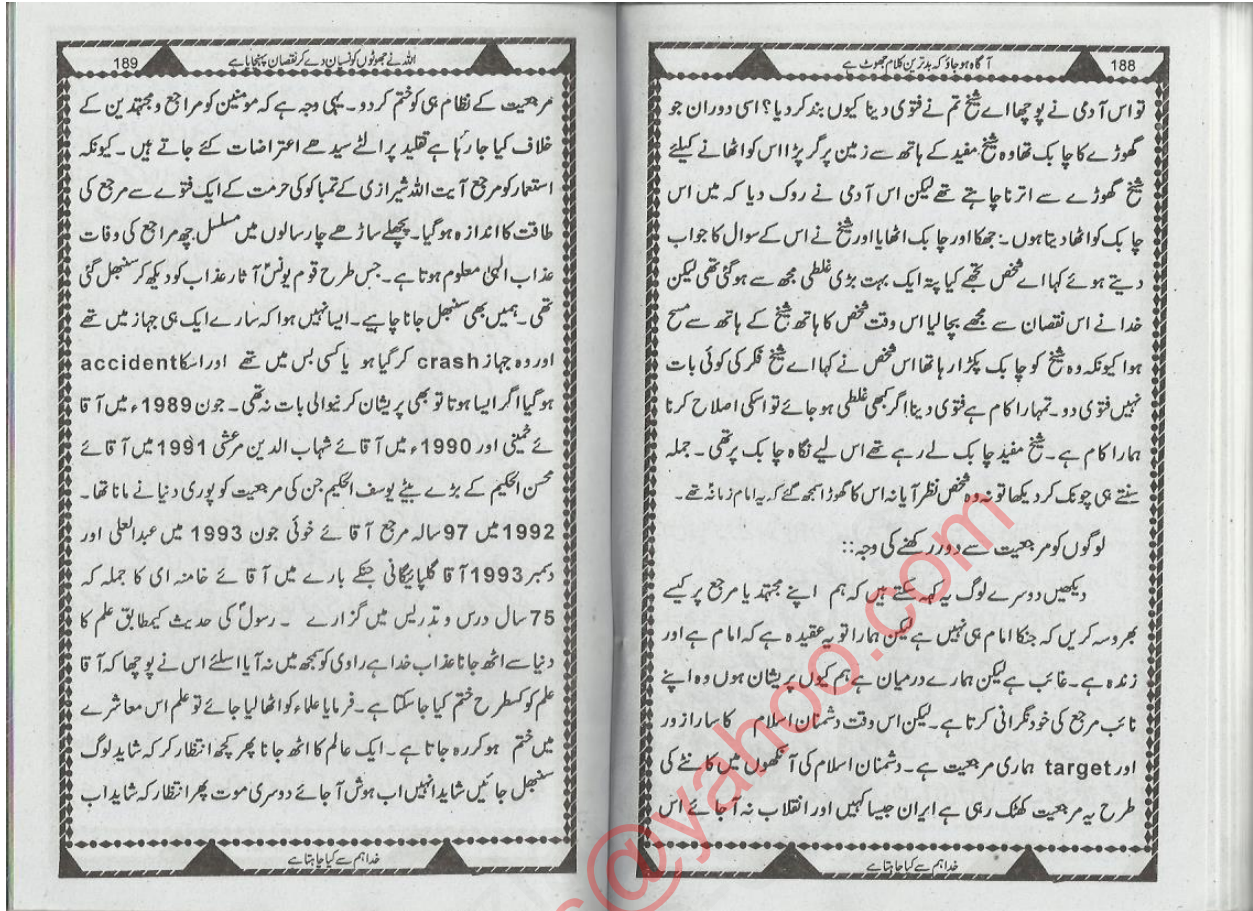 188
آگاہ ہو جاؤ کہ بدترین کلام جھوٹ ہے
تو اس آدمی نے پوچھا اے شیخ تم نے فتویٰ دینا کیوں بند کر دیا؟ اسی دوران جو
گھوڑے کا چابک تھا وہ شیخ مفید کے ہاتھ سے زمین پر گر پڑا اس کو اٹھانے کیلئے
شیخ گھوڑے سے اترنا چاہتے تھے لیکن اس آدمی نے روک دیا کہ میں اس
چابک کو اٹھا دیتا ہوں۔ جھکا اور چابک اٹھایا اور شیخ نے اس کے سوال کا جواب
دیتے ہوئے کہا اے شخص تجھے کیا پتہ ایک بہت بڑی غلطی مجھ سے ہو گئی تھی لیکن
خدا نے اس نقصان سے مجھے بچا لیا اس وقت شخص کا ہاتھ شیخ کے ہاتھ سے مسح
ہوا کیونکہ وہ شیخ کو چابک پکڑا رہا تھا اس شخص نے کہا اے شیخ فکر کی کوئی بات
نہیں فتویٰ دو۔ تمہارا کام ہے فتویٰ دینا اگر کبھی غلطی ہو جائے تو اسکی اصلاح کرنا
ہمارا کام ہے۔ شیخ مفید چابک لے رہے تھے اس لیے نگاہ چابک پر تھی۔ جملہ
سنتے ہی چونک کر دیکھا تو نہ وہ شخص نظر آیا نہ اس کا گھوڑا سمجھ گئے کہ یہ امام زمانہؑ تھے۔
لوگوں کو مرجعیت سے دور رکھنے کی وجہ::
دیکھیں دوسرے لوگ یہ کہہ سکتے ہیں کہ ہم اپنے مجتہد یا مرجع پر کیسے
بھروسہ کریں کہ جنکا امام ہی نہیں ہے لیکن ہمارا تو یہ عقیدہ ہے کہ امام ہے اور
زندہ ہے۔ غائب ہے لیکن ہمارے درمیان ہے ہم کیوں پریشان ہوں وہ اپنے
نائب مرجع کی خود نگرانی کرتا ہے۔ لیکن اس وقت دشمنان اسلام کا سارا زور
اور target ہماری مرجعیت ہے۔ دشمنان اسلام کی آنکھوں میں کانٹے کی
طرح یہ مرجعیت کھٹک رہی ہے ایران جیسا کہیں اور انقلاب نہ آ جائے اس
خدا ہم سے کیا چاہتا ہے
189
اللہ نے جھوٹوں کو نسیان دے کر نقصان پہنچایا ہے
مرجعیت کے نظام ہی کو ختم کر دو۔ یہی وجہ ہے کہ مومنین کو مراجع و مجتہدین کے
خلاف کیا جا رہا ہے تقلید پر الٹے سیدھے اعتراضات کئے جاتے ہیں۔ کیونکہ
استعمار کو مرجع آیت اللہ شیرازی کے تمباکو کی حرمت کے ایک فتوے سے مرجع کی
طاقت کا اندازہ ہو گیا۔ پچھلے ساڑھے چار سالوں میں مسلسل چھ مراجع کی وفات
عذاب الہیٰ معلوم ہوتا ہے۔ جس طرح قوم یونسؑ آثار عذاب کو دیکھ کر سنبھل گئی
تھی۔ ہمیں بھی سنبھل جانا چاہیے۔ ایسا نہیں ہوا کہ سارے ایک ہی جہاز میں تھے
اور وہ جہاز crash کر گیا ہو یا کسی بس میں تھے اور اسکا accident
ہو گیا اگر ایسا ہوتا تو بھی پریشان کرنیوالی بات نہ تھی۔ جون 1989ء میں آقا
ئے خمینی اور 1990ء میں آقائے شہاب الدین مرعشی 1991 میں آقائے
محسن الحکیم کے بڑے بیٹے یوسف الحکیم جن کی مرجعیت کو پوری دنیا نے مانا تھا۔
1992 میں 97 سالہ مرجع آقائے خوئی جون 1993 میں عبدالعلی اور
دسمبر 1993 آقا گلپائیگانی جنکے بارے میں آقائے خامنہ ای کا جملہ کہ
75 سال درس و تدریس میں گزارے ۔ رسولؐ کی حدیث کیمطابق علم کا
دنیا سے اٹھ جانا عذاب خدا ہے راوی کو سمجھ میں نہ آیا اسلئے اس نے پوچھا کہ آقا
علم کو کسطرح ختم کیا جا سکتا ہے۔ فرمایا علماء کو اٹھا لیا جائے تو علم اس معاشرے
میں ختم ہو کر رہ جاتا ہے۔ ایک عالم کا اٹھ جانا پھر کچھ انتظار کر کہ شاید لوگ
سنبھل جائیں شاید انہیں اب ہوش آ جائے دوسری موت پھر انتظار کہ شاید اب
خدا ہم سے کیا چاہتا ہے
@yahoo.com